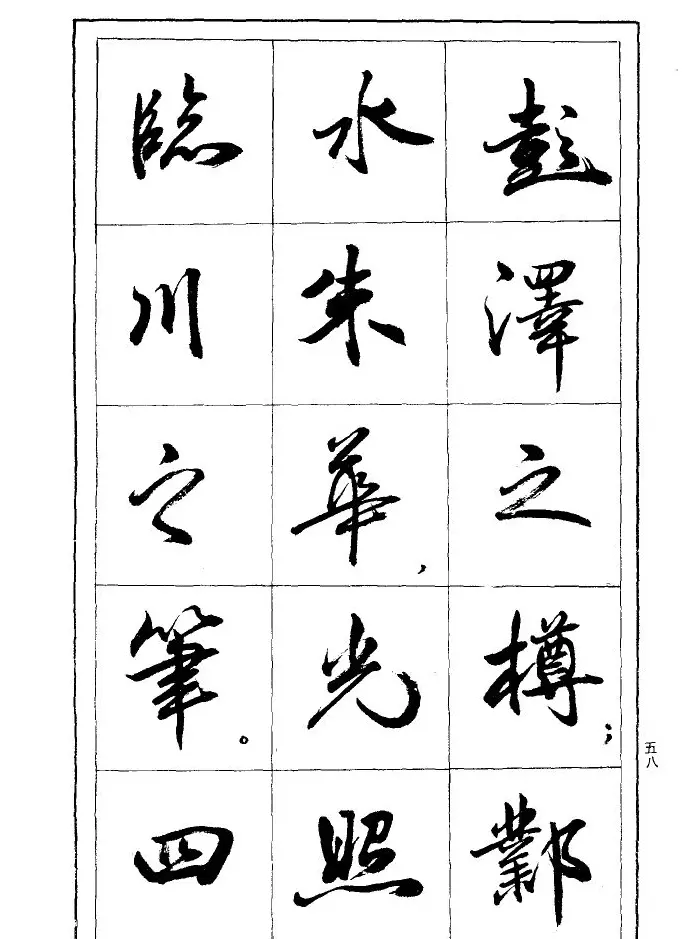 彭澤之樽；鄴
水朱華，光照
臨川之筆。四
五八